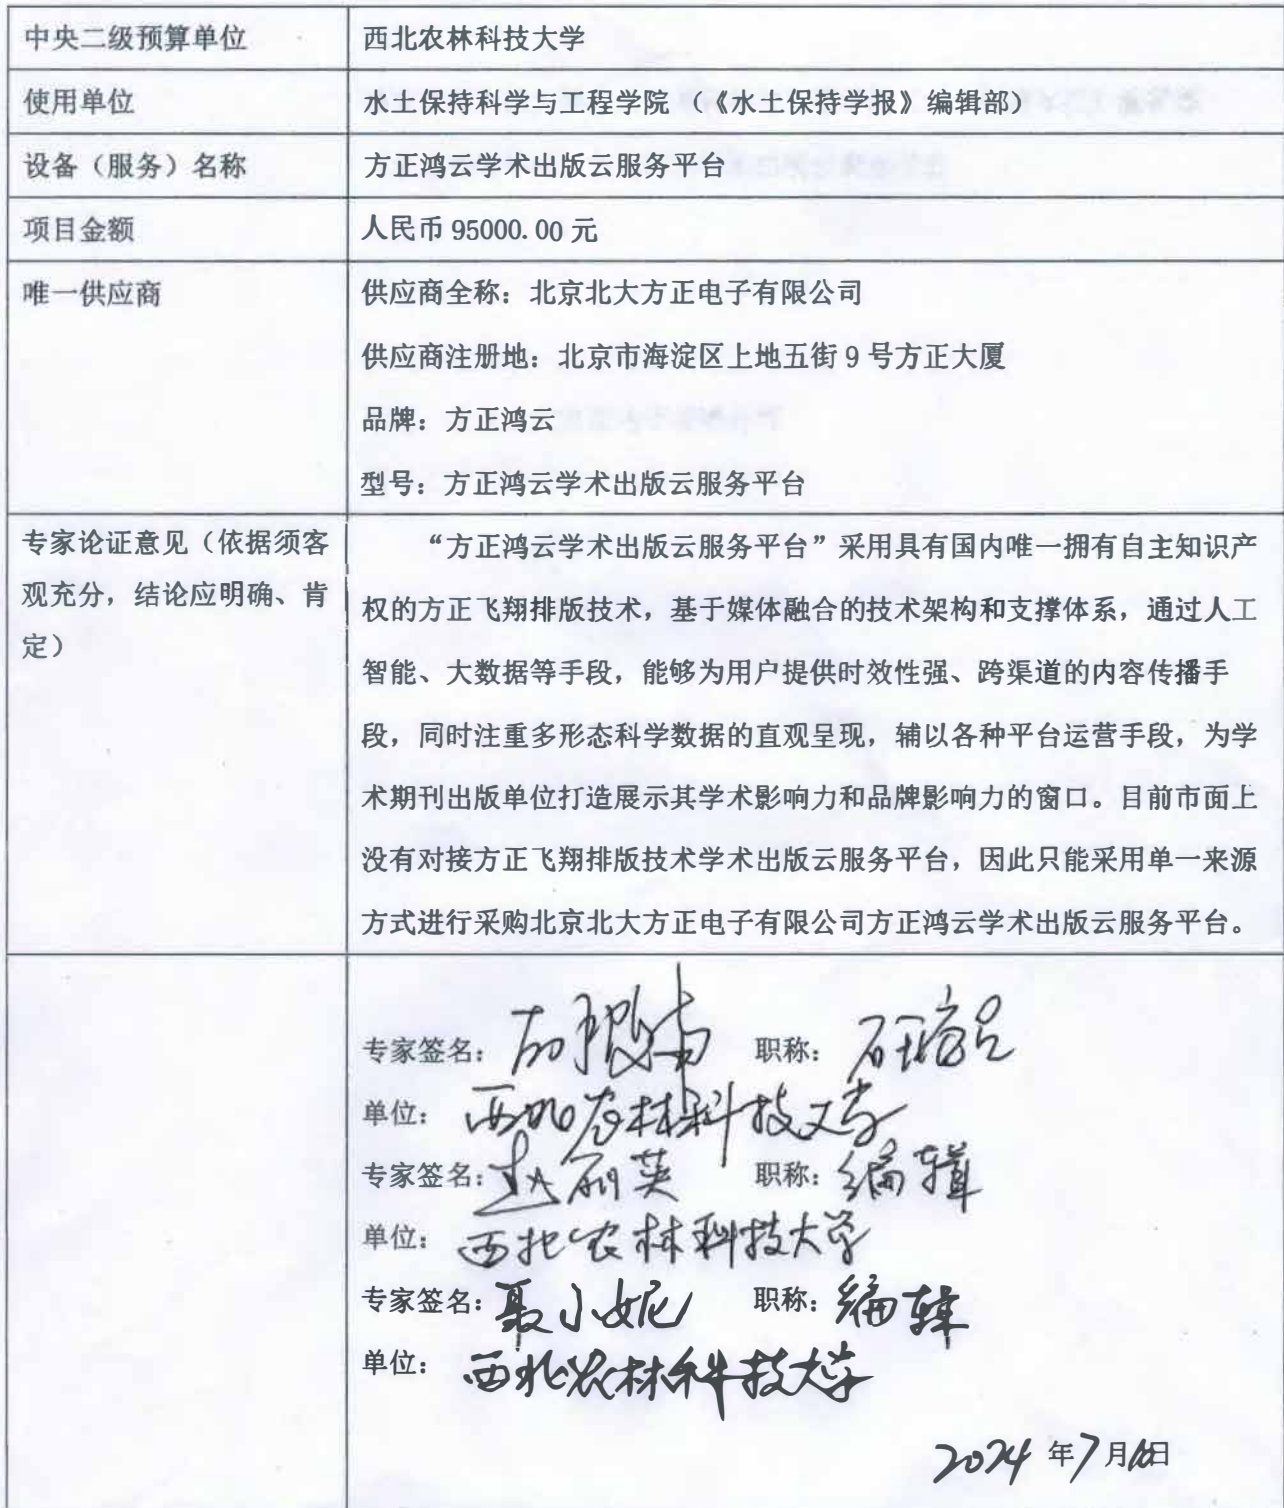 中央二级预算单位
西北农林科技大学
使用单位
水土保持科学与工程学院（《水土保持学报》编辑部）
设备（服务）名称
方正鸿云学术出版云服务平台
项目金额
人民币 95000.00 元
唯一供应商
供应商全称：北京北大方正电子有限公司
供应商注册地：北京市海淀区上地五街 9 号方正大厦
品牌：方正鸿云
型号：方正鸿云学术出版云服务平台
专家论证意见（依据须客
观充分，结论应明确、肯
定）
“方正鸿云学术出版云服务平台”采用具有国内唯一拥有自主知识产
权的方正飞翔排版技术，基于媒体融合的技术架构和支撑体系，通过人工
智能、大数据等手段，能够为用户提供时效性强、跨渠道的内容传播手
段，同时注重多形态科学数据的直观呈现，辅以各种平台运营手段，为学
术期刊出版单位打造展示其学术影响力和品牌影响力的窗口。目前市面上
没有对接方正飞翔排版技术学术出版云服务平台，因此只能采用单一来源
方式进行采购北京北大方正电子有限公司方正鸿云学术出版云服务平台。
专家签名： 职称：研究员
单位：西北农林科技大学
专家签名：赵丽英 职称：编辑
单位：西北农林科技大学
专家签名：聂小妮 职称：编辑
单位：西北农林科技大学
2024 年 7 月 日